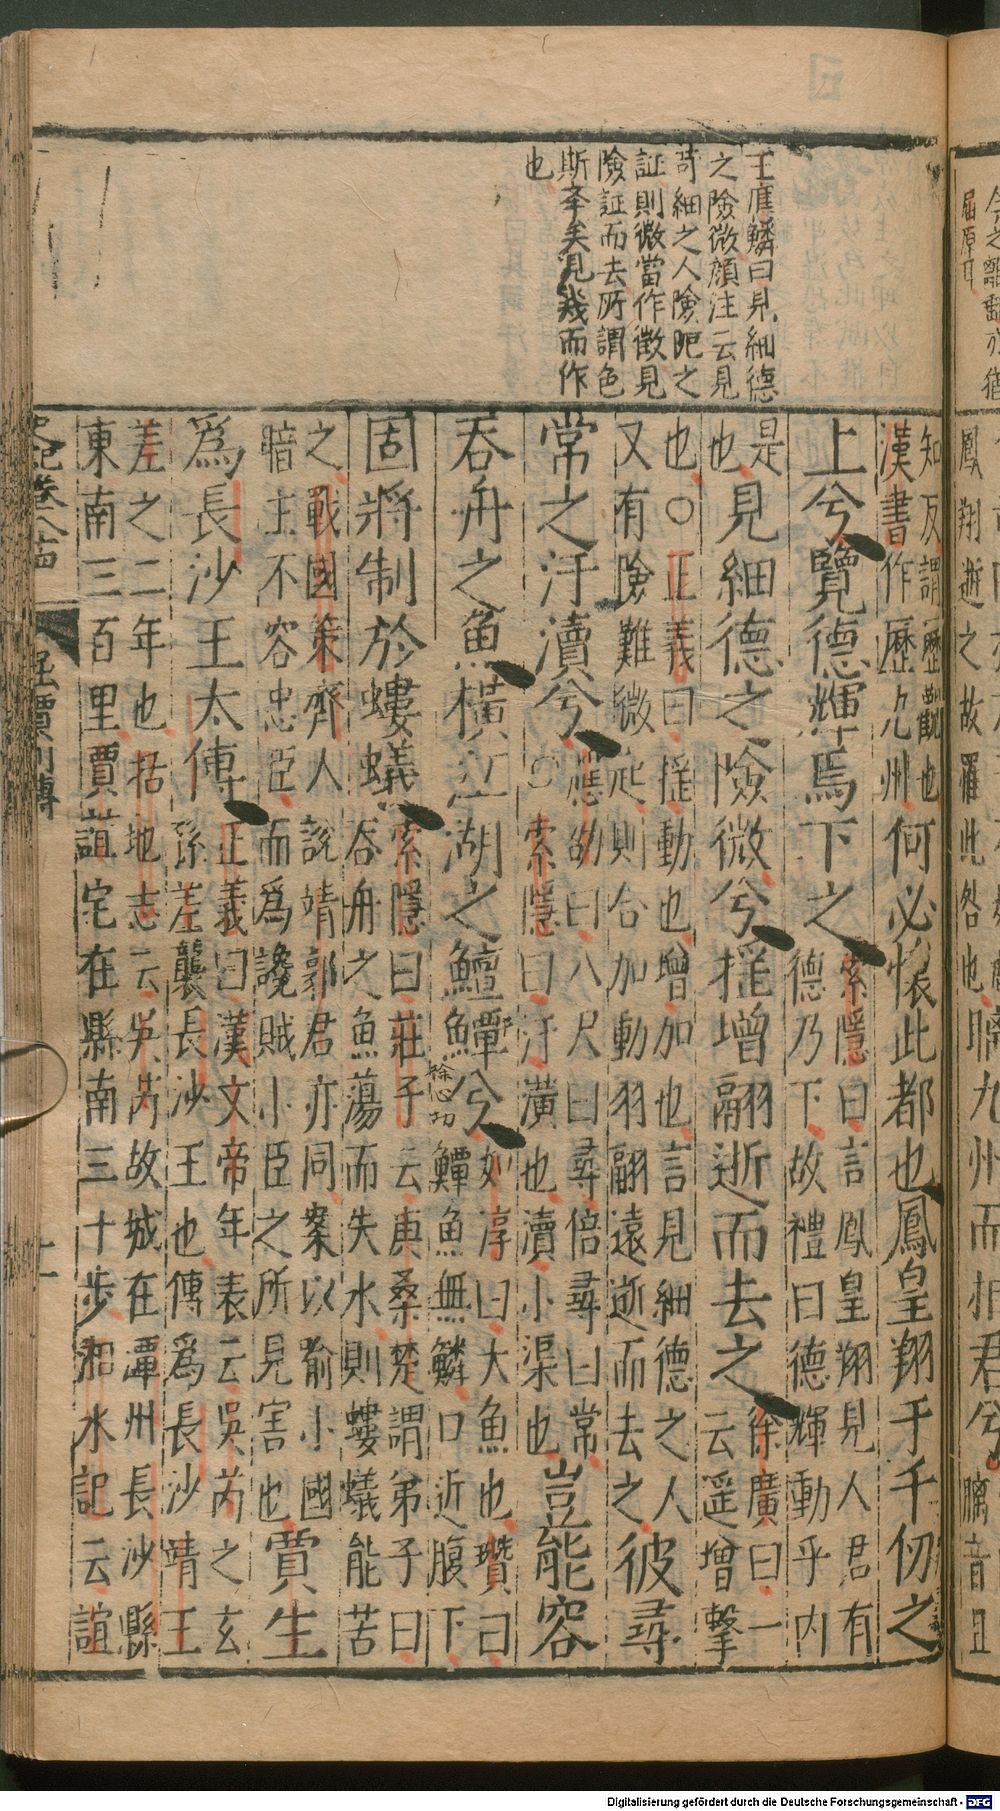 屈原耳
鳳翔逝之故罹此咎也
瞝九州而相君兮
王應麟曰見細德
之險微顏注云見
苛細之人險阨之
証則微當作徵見
險証而去所謂色
斯夆矣見幾而作
也
知反謂歷觀也
漢書作歷九州
何必懷此都也鳳皇翔于千仞之
上兮覽德輝焉下之
索隱曰言鳳皇翔見人君有
德乃下故禮曰德輝動乎內
是
也
見細德之險微兮搖增翮逝而去之
徐廣曰一
云遥增擊
也○正義曰搖動也增加也言見細德之人
又有險難微起則合加動羽翮遠逝而去之
彼尋
常之汙瀆兮
應劭曰八尺曰尋倍尋曰常
○索隱曰汙潢也瀆小渠也
豈能容
吞舟之魚橫江湖之鱣鱏兮
如淳曰大魚也瓚曰
鱏魚無鱗口近腹下
固將制於螻蟻
索隱曰莊子云庚桑楚謂弟子曰
吞舟之魚蕩而失水則螻蟻能苦
之戰國策齊人說靖郭君亦同案以喻小國
暗主不容忠臣而爲讒賊小臣之所見害也
賈生
爲長沙王太傅
正義曰漢文帝年表云吳芮之玄
孫差襲長沙王也傅爲長沙靖王
差之二年也括地志云吳芮故城在潭州長沙縣
東南三百里賈誼宅在縣南三十步湘水記云誼
屈賈列傳
Digitalisierung gefördert durch die Deutsche Forschungsgemeinschaft - DFG